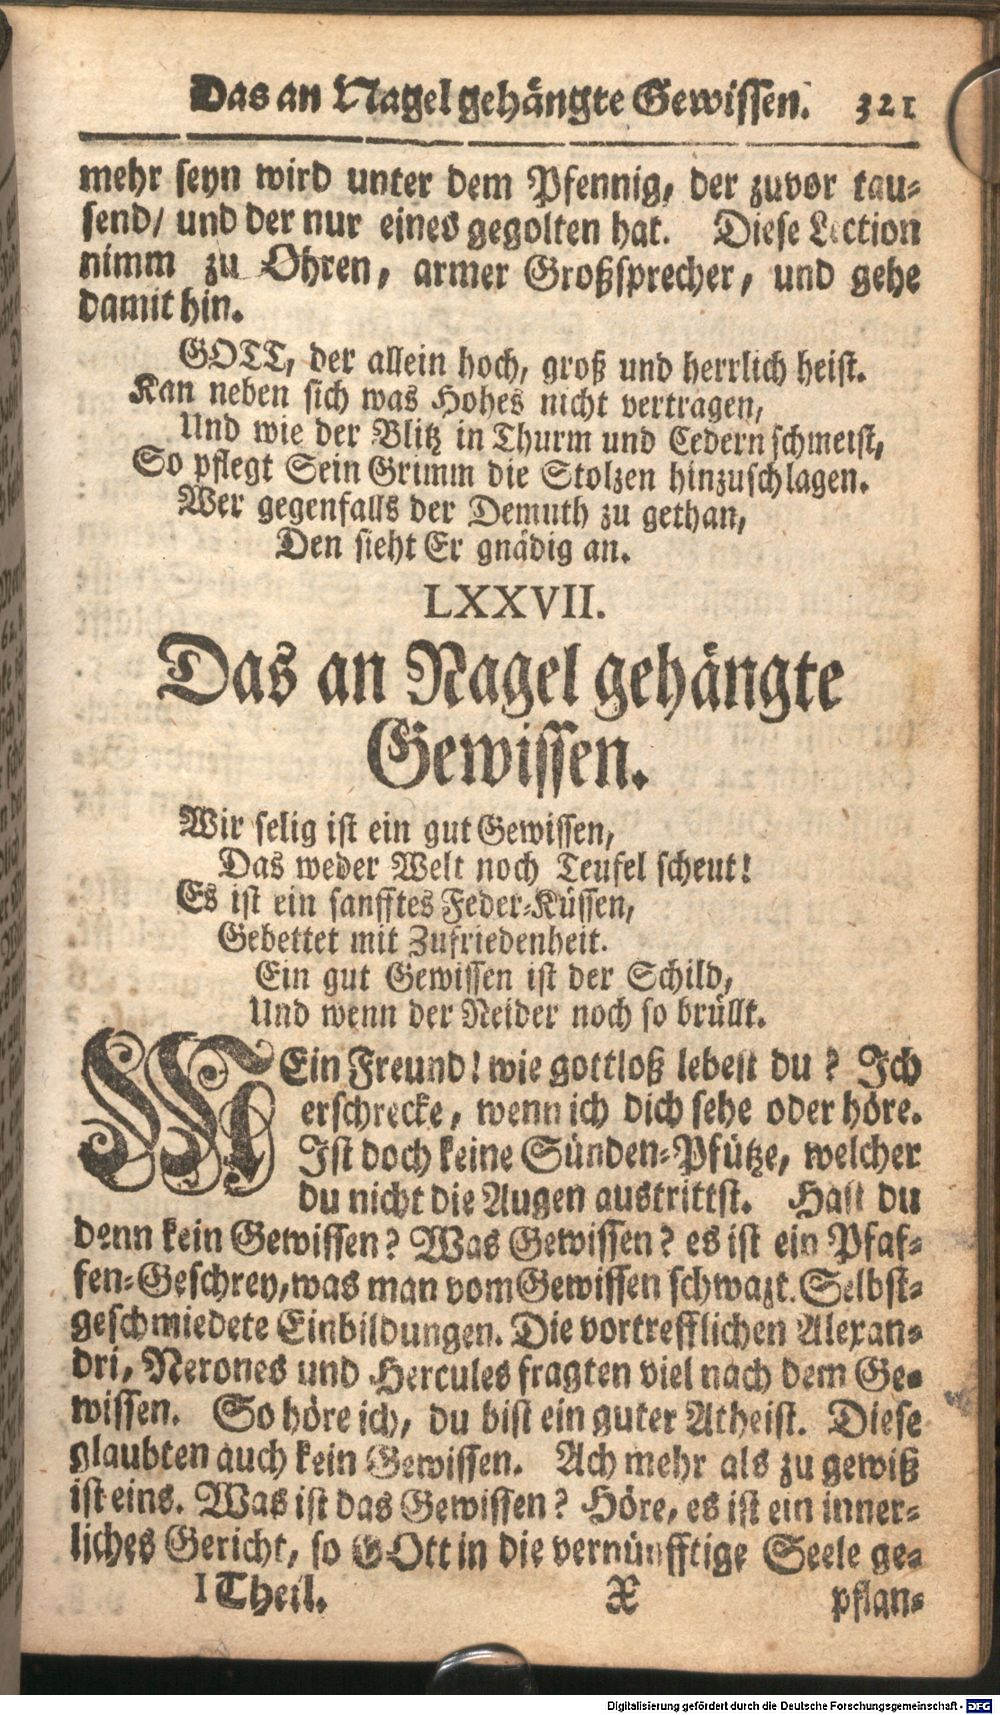 Das an Nagel gehängte Gewissen. 321
mehr seyn wird unter dem Pfennig, der zuvor tau-
send/ und der nur eines gegolten hat. Diese Lection
nimm zu Ohren, armer Großsprecher, und gehe
damit hin.
GOTT, der allein hoch, groß und herrlich heist.
Kan neben sich was Hohes nicht vertragen,
Und wie der Blitz in Thurm und Cedern schmeist,
So pflegt Sein Grimm die Stolzen hinzuschlagen.
Wer gegenfalls der Demuth zu gethan,
Den sieht Er gnädig an.
LXXVII.
Das an Nagel gehängte
Gewissen.
Wir selig ist ein gut Gewissen,
Das weder Welt noch Teufel scheut!
Es ist ein sanfftes Feder-Küssen,
Gebettet mit Zufriedenheit.
Ein gut Gewissen ist der Schild,
Und wenn der Neider noch so brüllt.
MEin Freund! wie gottloß lebest du? Ich
erschrecke, wenn ich dich sehe oder höre.
Ist doch keine Sünden-Pfütze, welcher
du nicht die Augen austrittst. Hast du
denn kein Gewissen? Was Gewissen? es ist ein Pfaf-
fen-Geschrey, was man vom Gewissen schwazt. Selbst-
geschmiedete Einbildungen. Die vortrefflichen Alexan-
dri, Nerones und Hercules fragten viel nach dem Ge-
wissen. So höre ich, du bist ein guter Atheist. Diese
glaubten auch kein Gewissen. Ach mehr als zu gewiß
ist eins. Was ist das Gewissen? Höre, es ist ein inner-
liches Gericht, so GOtt in die vernünfftige Seele ge-
I Theil. X pflan-
Digitalisierung gefördert durch die Deutsche Forschungsgemeinschaft - DFG